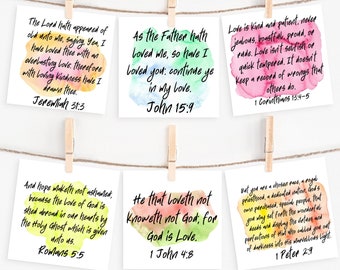 The Lord hath appeared of
old unto me, saying, Yea, I
have loved thee with an
everlasting love: therefore
with loving kindness have I
drawn thee.
Jeremiah 31:3
As the Father hath
loved me, so have I
loved you: continue ye
in my love.
John 15:9
Love is kind and patient, never
jealous, boastful, proud, or
rude. Love isn't selfish or
quick tempered. It doesn't
keep a record of wrongs that
others do.
1 Corinthians 13:4-5
And hope maketh not ashamed;
because the love of God is
shed abroad in our hearts by
the Holy Ghost which is given
unto us.
Romans 5:5
He that loveth not
knoweth not God; for
God is Love.
1 John 4:8
But you are a chosen race, a royal
priesthood, a dedicated nation, God's
own purchased, special people, that
you may set forth the wonderful
deeds and display the virtues and
perfections of Him who called you out
of darkness into His marvelous light.
1 Peter 2:9